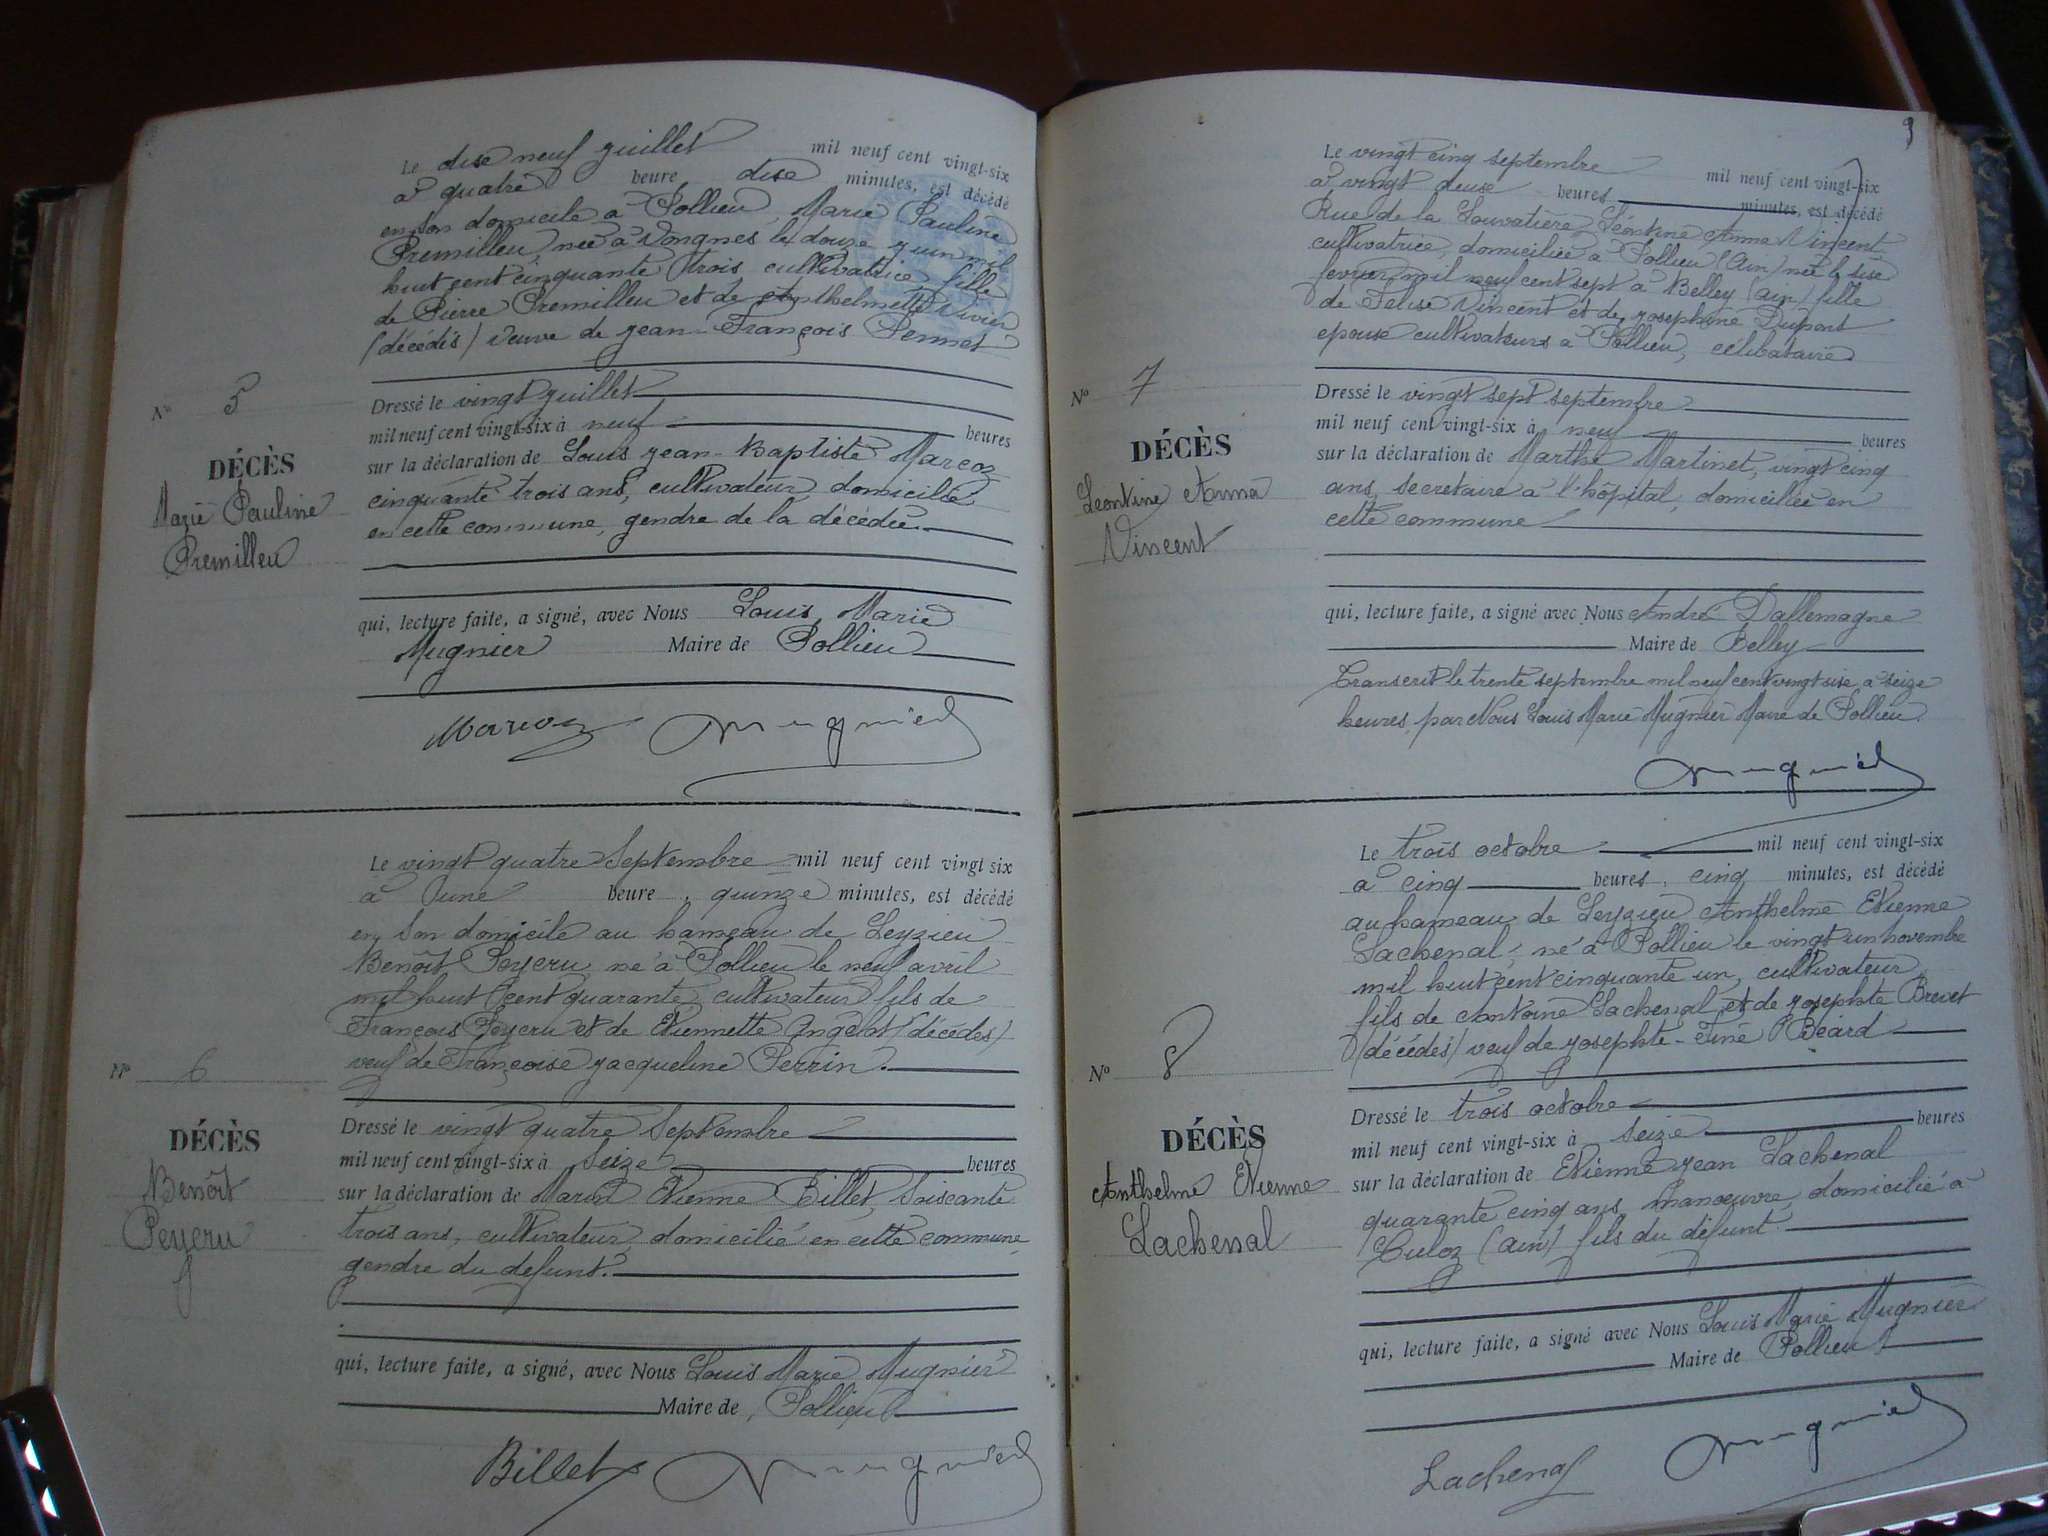 Le dise neuf juillet mil neuf cent vingt-six
à quatre heure dise minutes, est décédé
en son domicile à Pollieu, Marie Pauline
Premillieu, née à Vongnes le douze juin mil
huit cent cinquante trois cultivatrice fille
de Pierre Premillieu et de Anthelmette Vivier
(décédés) veuve de Jean-François Pennet
Nº 5
Dressé le vingt juillet
mil neuf cent vingt-six à neuf heures
DÉCÈS
sur la déclaration de Louis Jean-Baptiste Marcoz
Marie Pauline
cinquante trois ans, cultivateur, domicilié
Premillieu
en cette commune, gendre de la décédée.
qui, lecture faite, a signé, avec Nous Louis, Marie
Mugnier Maire de Pollieu
Marcoz Mugnier
Le vingt quatre Septembre mil neuf cent vingt six
à une heure, quinze minutes, est décédé
en son domicile au hameau de Leyzieu
Benoît Peycru né à Pollieu le neuf avril
mil huit cent quarante, cultivateur fils de
François Peycru et de Etiennette Angelot (décédés)
veuf de Françoise Jacqueline Perrin.
Nº 6
Dressé le vingt quatre Septembre
DÉCÈS
mil neuf cent vingt-six à seize heures
Benoît
sur la déclaration de Marin Etienne Billet, soiscante
Peycru
trois ans, cultivateur, domicilié en cette commune,
gendre du défunt.
qui, lecture faite, a signé, avec Nous Louis Marie Mugnier
Maire de Pollieu
Billet Mugnier
9
Le vingt cinq septembre mil neuf cent vingt-six
à vingt deuse heures minutes, est décédé
Rue de la Louvatière, Léontine Anna Vincent
cultivatrice, domiciliée à Pollieu (Ain) née le sise
fevrier mil neuf cent sept à Belley (ain) fille
de Felise Vincent et de Josephine Dupont
epouse cultivateurs à Pollieu, célibataire
Nº 7
Dressé le vingt sept septembre
mil neuf cent vingt-six à neuf heures
DÉCÈS
sur la déclaration de Marthe Martinet, vingt cinq
Leontine Anna
ans, secretaire à l'hôpital, domiciliée en
Vincent
cette commune
qui, lecture faite, a signé avec Nous André Dallemagne
Maire de Belley
Transcrit le trente septembre mil neuf cent vingt sise à seize
heures, par Nous Louis Marie Mugnier Maire de Pollieu
Mugnier
Le trois octobre mil neuf cent vingt-six
à cinq heures, cinq minutes, est décédé
au hameau de Leyzieu Anthelme Etienne
Lachenal, né à Pollieu le vingt un novembre
mil huit cent cinquante un, cultivateur
fils de Antoine Lachenal et de Josephte Brevet
(décédés) veuf de Josephte-Finé Béard
Nº 8
Dressé le trois octobre
DÉCÈS
mil neuf cent vingt-six à seize heures
Anthelme Etienne
sur la déclaration de Etienne Jean Lachenal
Lachenal
quarante cinq ans, manœuvre, domicilié à
Culoz (ain) fils du défunt.
qui, lecture faite, a signé avec Nous Louis Marie Mugnier
Maire de Pollieu
Lachenal Mugnier